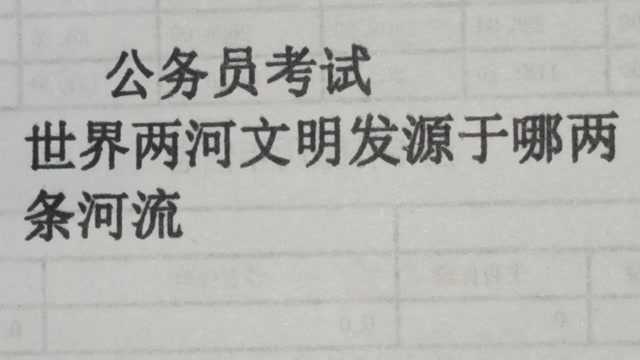 公务员考试
世界两河文明发源于哪两
条河流